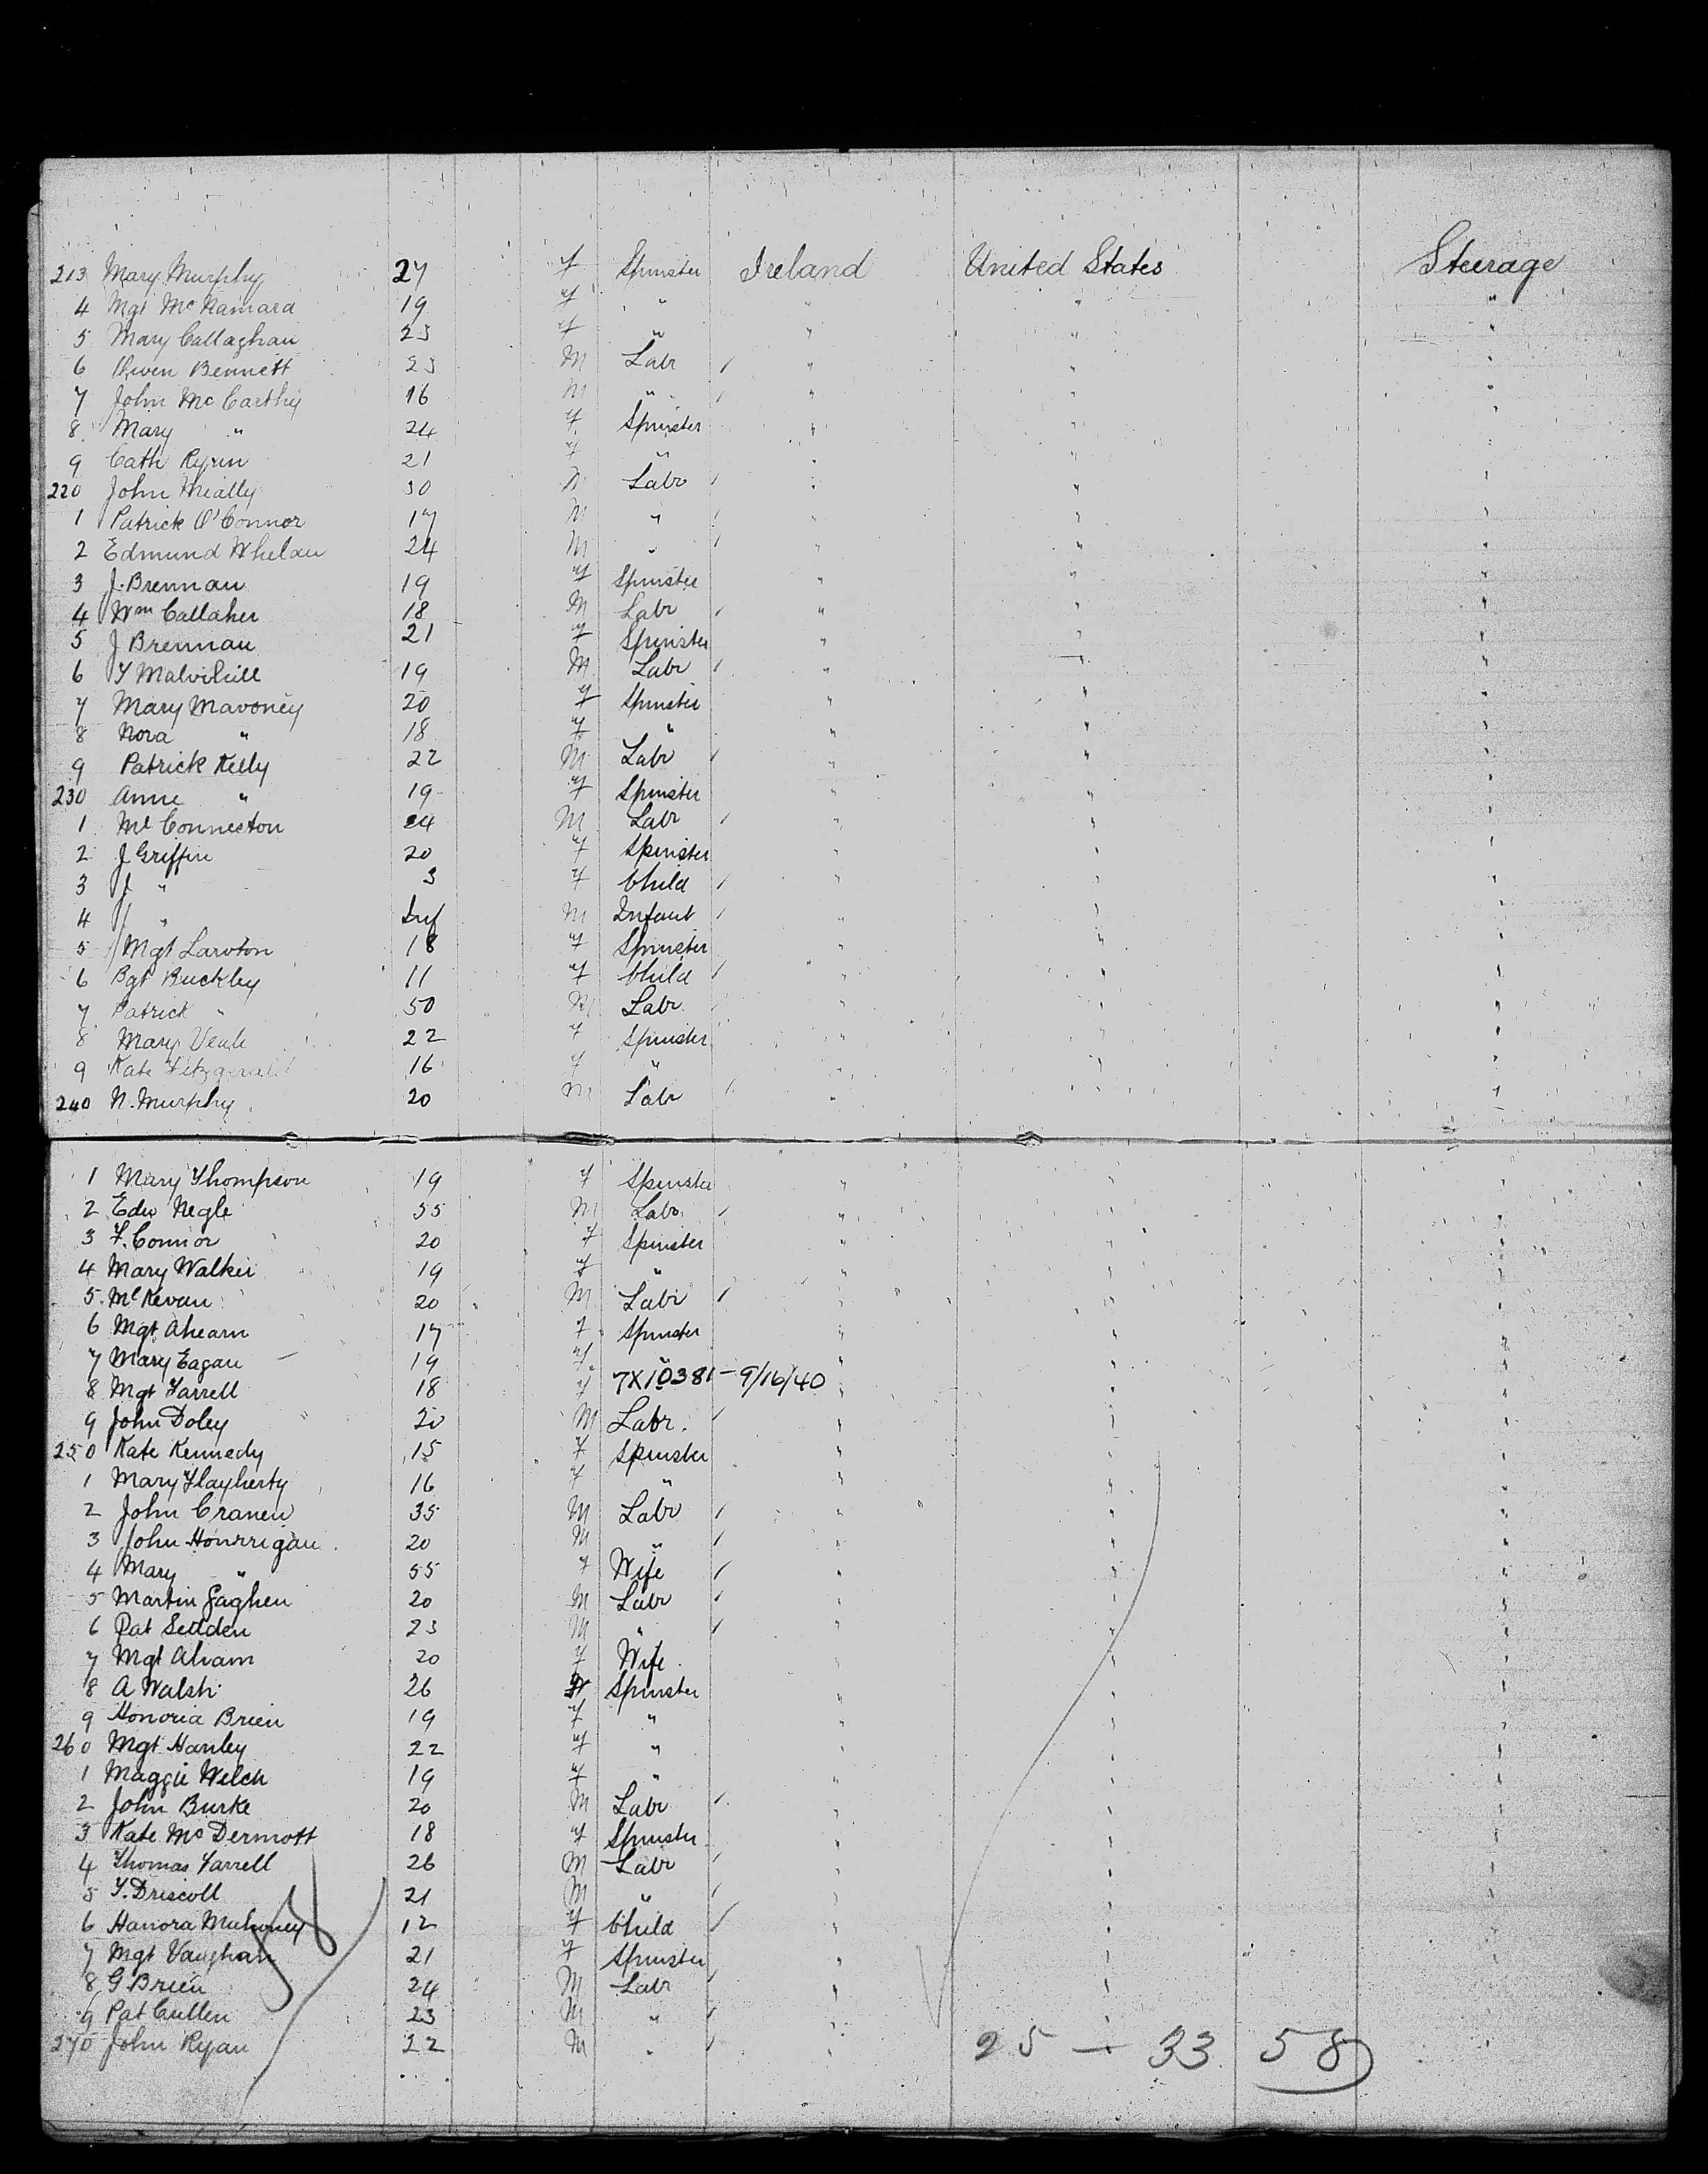 213 Mary Murphy 27 f Spinster Ireland United States Steerage
4 Mgt McNamara 19 f " " " "
5 Mary Callaghan 23 f " " " "
6 Owen Bennett 23 M Labr " " "
7 John McCarthy 16 M " " " "
8 Mary " 24 f Spinster " " "
9 Cath Ryan 21 f " " " "
220 John Meally 30 M Labr " " "
1 Patrick O'Connor 17 M " " " "
2 Edmund Whelan 24 M " " " "
3 J. Brennan 19 f Spinster " " "
4 Wm Callaher 18 M Labr " " "
5 J Brennan 21 f Spinster " " "
6 T Malvihill 19 M Labr " " "
7 Mary Mavoney 20 f Spinster " " "
8 Nora " 18 f " " " "
9 Patrick Kelly 22 M Labr " " "
230 Anne " 19 f Spinster " " "
1 Ml Conneeton 24 M Labr " " "
2 J Griffin 20 f Spinster " " "
3 J " 3 f Child " " "
4 J " Inf M Infant " " "
5 Mgt Lawton 18 f Spinster " " "
6 Bgt Buckley 11 f Child " " "
7 Patrick " 50 M Labr " " "
8 Mary Veale 22 f Spinster " " "
9 Kate Fitzgerald 16 f " " " "
240 N. Murphy 20 M Labr " " "
1 Mary Thompson 19 f Spinster " " "
2 Edw Negle 55 M Labr " " "
3 F. Connor 20 f Spinster " " "
4 Mary Walker 19 f " " " "
5 Ml Kevan 20 M Labr " " "
6 Mgt Ahearn 17 f Spinster " " "
7 Mary Eagan 19 f " " " "
8 Mgt Farrell 18 f 7X10381-9/16/40 " " "
9 John Doley 20 M Labr. " " "
250 Kate Kennedy 15 f Spinster " " "
1 Mary Flagherty 16 f " " " "
2 John Cranen 35 M Labr " " "
3 John Hourrigan 20 M " " " "
4 Mary " 55 f Wife " " "
5 Martin Gaghen 20 M Labr " " "
6 Pat Sedden 23 M " " " "
7 Mgt Aham 20 f Wife " " "
8 A Walsh 26 f Spinster " " "
9 Honoria Brien 19 f " " " "
260 Mgt Hanley 22 f " " " "
1 Maggie Welch 19 f " " " "
2 John Burke 20 M Labr " " "
3 Kate McDermott 18 f Spinster " " "
4 Thomas Farrell 26 M Labr " " "
5 T. Driscoll 21 M " " " "
6 Hanora Mahoney 12 f Child " " "
7 Mgt Vaughan 21 f Spinster " " "
8 G Brien 24 M Labr " " "
9 Pat Cullen 23 M " " " "
270 John Ryan 22 M " " " "
25 — 33 58